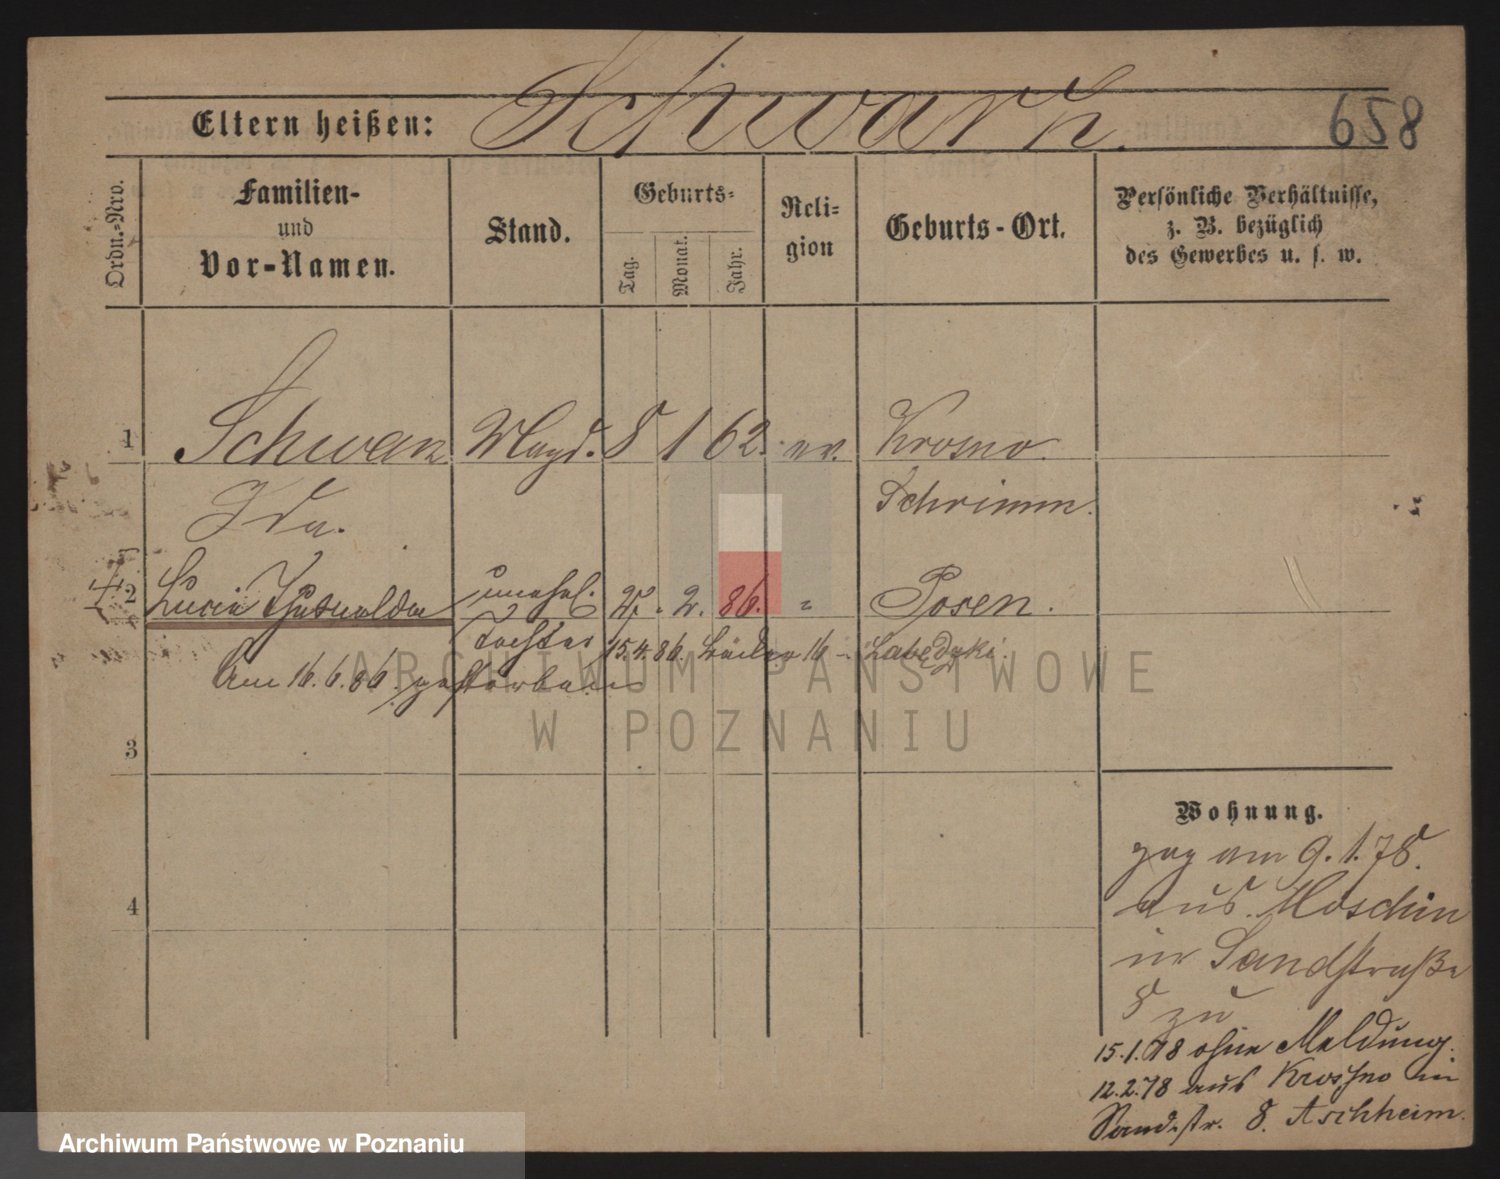 Eltern heißen: Schwarz. 658
Ordn.-Nro.
Familien-
und
Vor-Namen.
Stand.
Geburts-
Tag.
Monat.
Jahr.
Reli-
gion
Geburts-Ort.
Persönliche Verhältnisse,
z. B. bezüglich
des Gewerbes u. s. w.
1 Schwarz Magd. 8 1 62. ev. Krosno
Ida. Schrimm.
2 Lucie Thusnelda unehel. 27. 2. 86. " Posen.
Tochter 15.4.86. 16
Am 16.6.86. gestorben
ARCHIWUM PAŃSTWOWE
W POZNANIU
3
4
Wohnung.
zog am 9.1.78.
aus Moschin
in Sandstraße
8 zu
15.1.78 ohne Meldung.
12.2.78 aus Krosno in
Sandstr. 8. Aschheim.
Archiwum Państwowe w Poznaniu